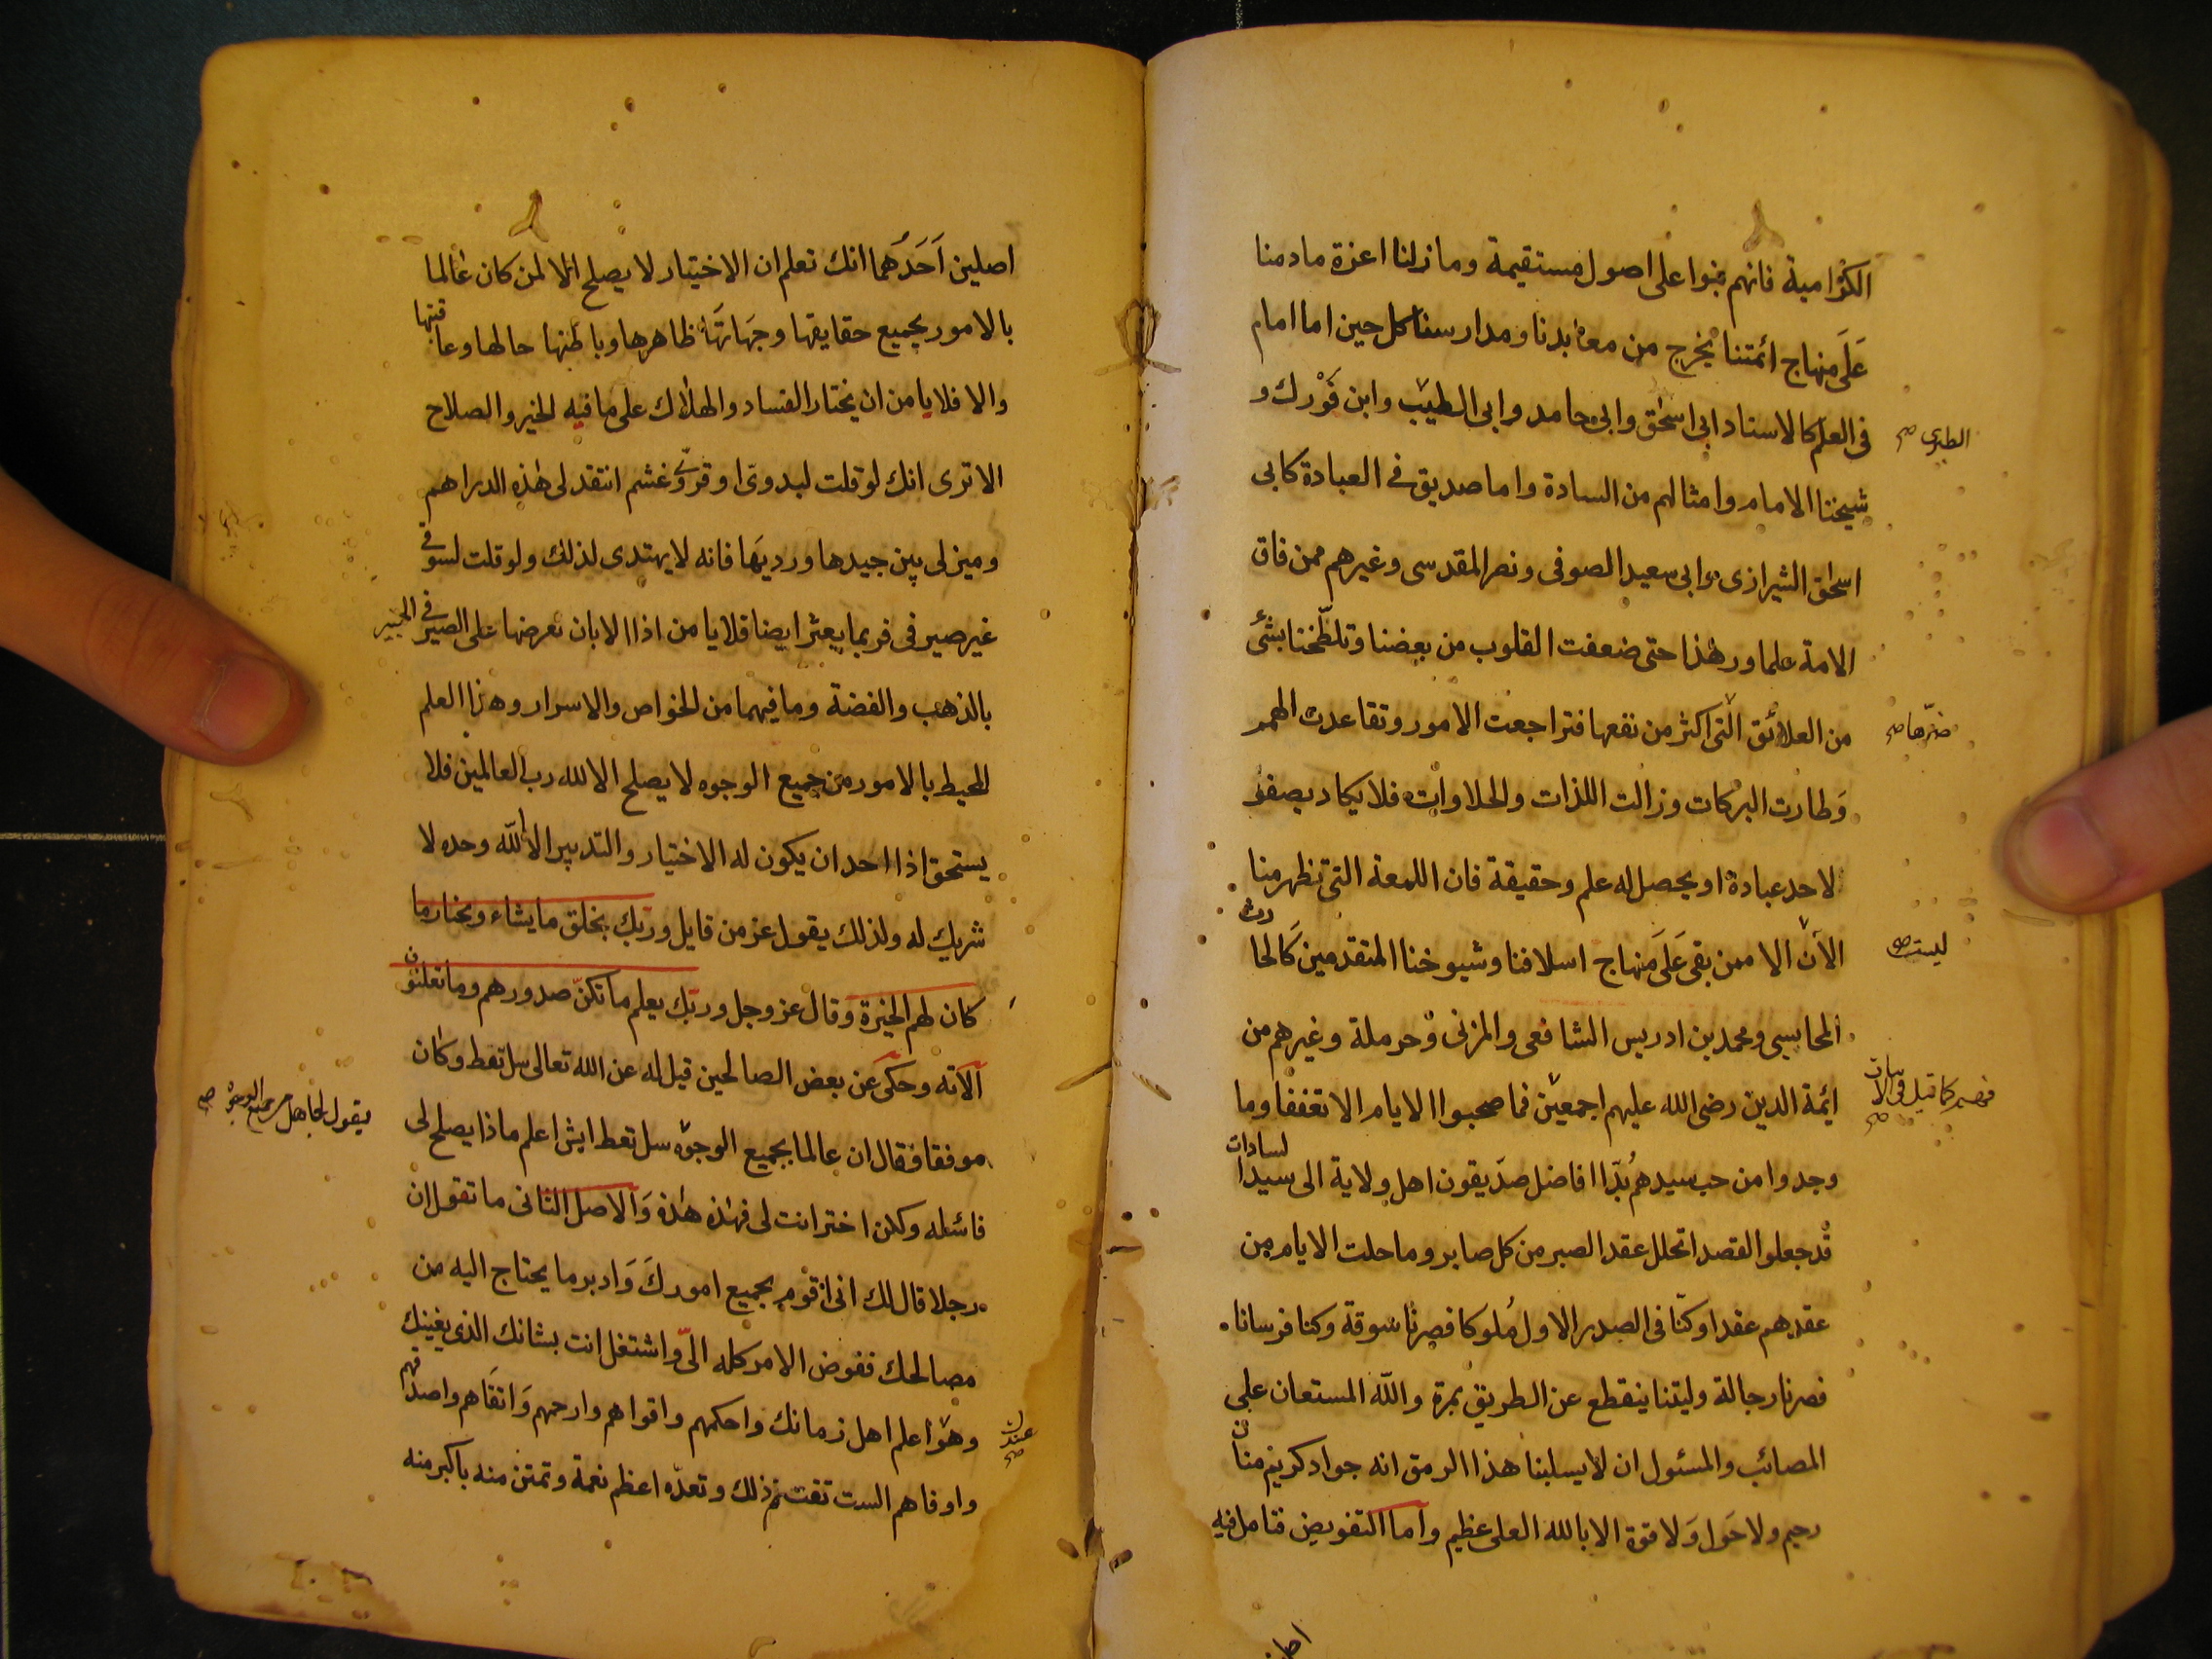 الكرامية فانهم بنوا على اصول مستقيمة وما زلنا اعزة ما دمنا
عَلَى منهاج ائمتنا يخرج من معابدنا ومدارسنا كل حين اما امام
فى العلم كالاستاد ابى اسحٰق وابى حامد وابى الطيب وابن فَوْرك و
الطبرى صح
شيخنا الامام وامثالهم من السادة واما صديق فى العبادة كابى
اسحٰق الشيرازى وابى سعيد الصوفى ونصر المقدسى وغيرهم ممن فاق
الامة علما وزهدا حتى ضعفت القلوب من بعضنا وتلطّخنا بشئ
من العلائق التى اكثر من نفعها فتراجعت الامور وتقاعدت الهمم
ضرّها صح
وَطارت البركات وزالت اللذات والحلاوات فلا يكاد يصفو
لاحد عبادة او يحصل له علم وحقيقة فان اللمعة التى تظهر منا
الآن الا ممن بقى عَلَى منهاج اسلافنا وشيوخنا المتقدمين كَالحارث
ليست صح
المحاسبى ومحمد بن ادريس الشافعى والمزنى وحرملة وغيرهم من
ائمة الدين رضى الله عليهم اجمعين فما صحبوا الايام الا تعففا وما
فهم كما قيل فى الابيات صح
وجدوا من حب سيدهم بُدّا افاضل صدّيقون اهل ولاية الى سيد السادات
قد جعلوا القصدا تحلل عقد الصبر من كل صابر وما حلت الايام من
عقدهم عقدا وكنّا فى الصدر الاول مُلوكا فصرنا سُوقة وكنا فرسانا
فصرنا رجالة وليتنا ينقطع عن الطريق بمرة والله المستعان على
المصائب والمسئول ان لا يسلبنا هذا الرمق انه جواد كريم منان
رحيم ولا حَول وَلا قوة الا بالله العلى عظيم واما التفويض فتامل فيه
اصلين اَحَدَهُما انك تعلم ان الاختيار لا يصلح الا لمن كان عالما
بالامور بجميع حقايقها وجهَاتهَا ظاهرها وباطنها حالها وعاقبتها
والا فلا يامن ان يختار الفساد والهلاك على ما فيه الخير والصلاح
الا ترى انك لو قلت لبدوىّ او قروىّ غشم انتقد لى هذه الدراهم
وميز لى بين جيدها ورديهَا فانه لا يهتدى لذلك ولو قلت لسوقى
غير صيرفى فربما يعثر ايضا فلا يامن اذا الا بان تعرضها على الصيرفى الخبير
بالذهب والفضة وما فيهما من الخواص والاسرار وهذا العلم
المحيط بالامور من جميع الوجوه لا يصلح الا لله رب العالمين فلا
يستحق اذا احد ان يكون له الاختيار والتدبير الا لله وحده لا
شريك له ولذلك يقول عز من قايل وربّك يخلق ما يشاء ويختار ما
كان لهم الخيرة وقال عز وجل وربّك يعلم ما تكنّ صدورهم وما يعلنون
الآنه وحكَى عن بعض الصالحين قيل له عن الله تعالى سل تعط وكان
موفقا فقال ان عالما بجميع الوجوه سل تعط ايش اعلم ماذا يصلح لى
يقول لجاهل من جميع الوجوه صح
فاسئله ولكن اختر انت لى فهذه هذه وَالاصل الثانى ما تقول ان
رجلا قال لك انى اقوم بجميع امورك وَادبر ما يحتاج اليه من
مصالحك ففوض الامر كله الىّ واشتغل انت بشانك الذى يغنيك
وهو اعلم اهل زمانك واحكمهم واقواهم وارحمهم وَاتقاهم واصدقهم
عندك صح
واوفاهم الست تغتنم ذلك وتعدّه اعظم نعمة وتمتن منه باكبر منه